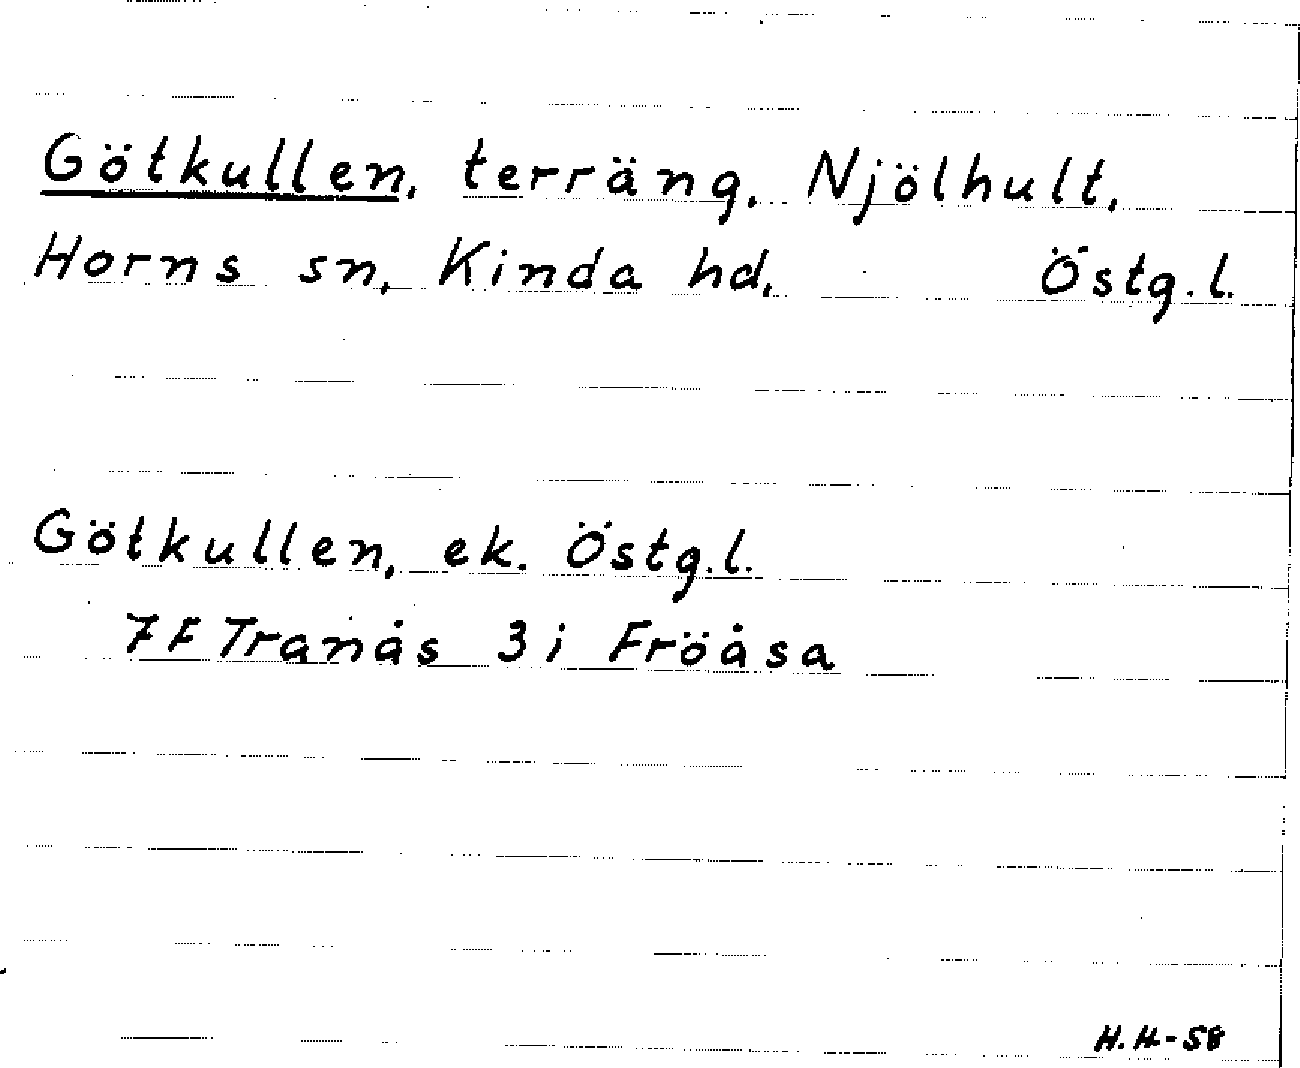 Götkullen, terräng, Njölhult,
Horns sn, Kinda hd, Östg.l.
Götkullen, ek. Östg.l.
7F Tranås 3i Fröåsa
H.H-58